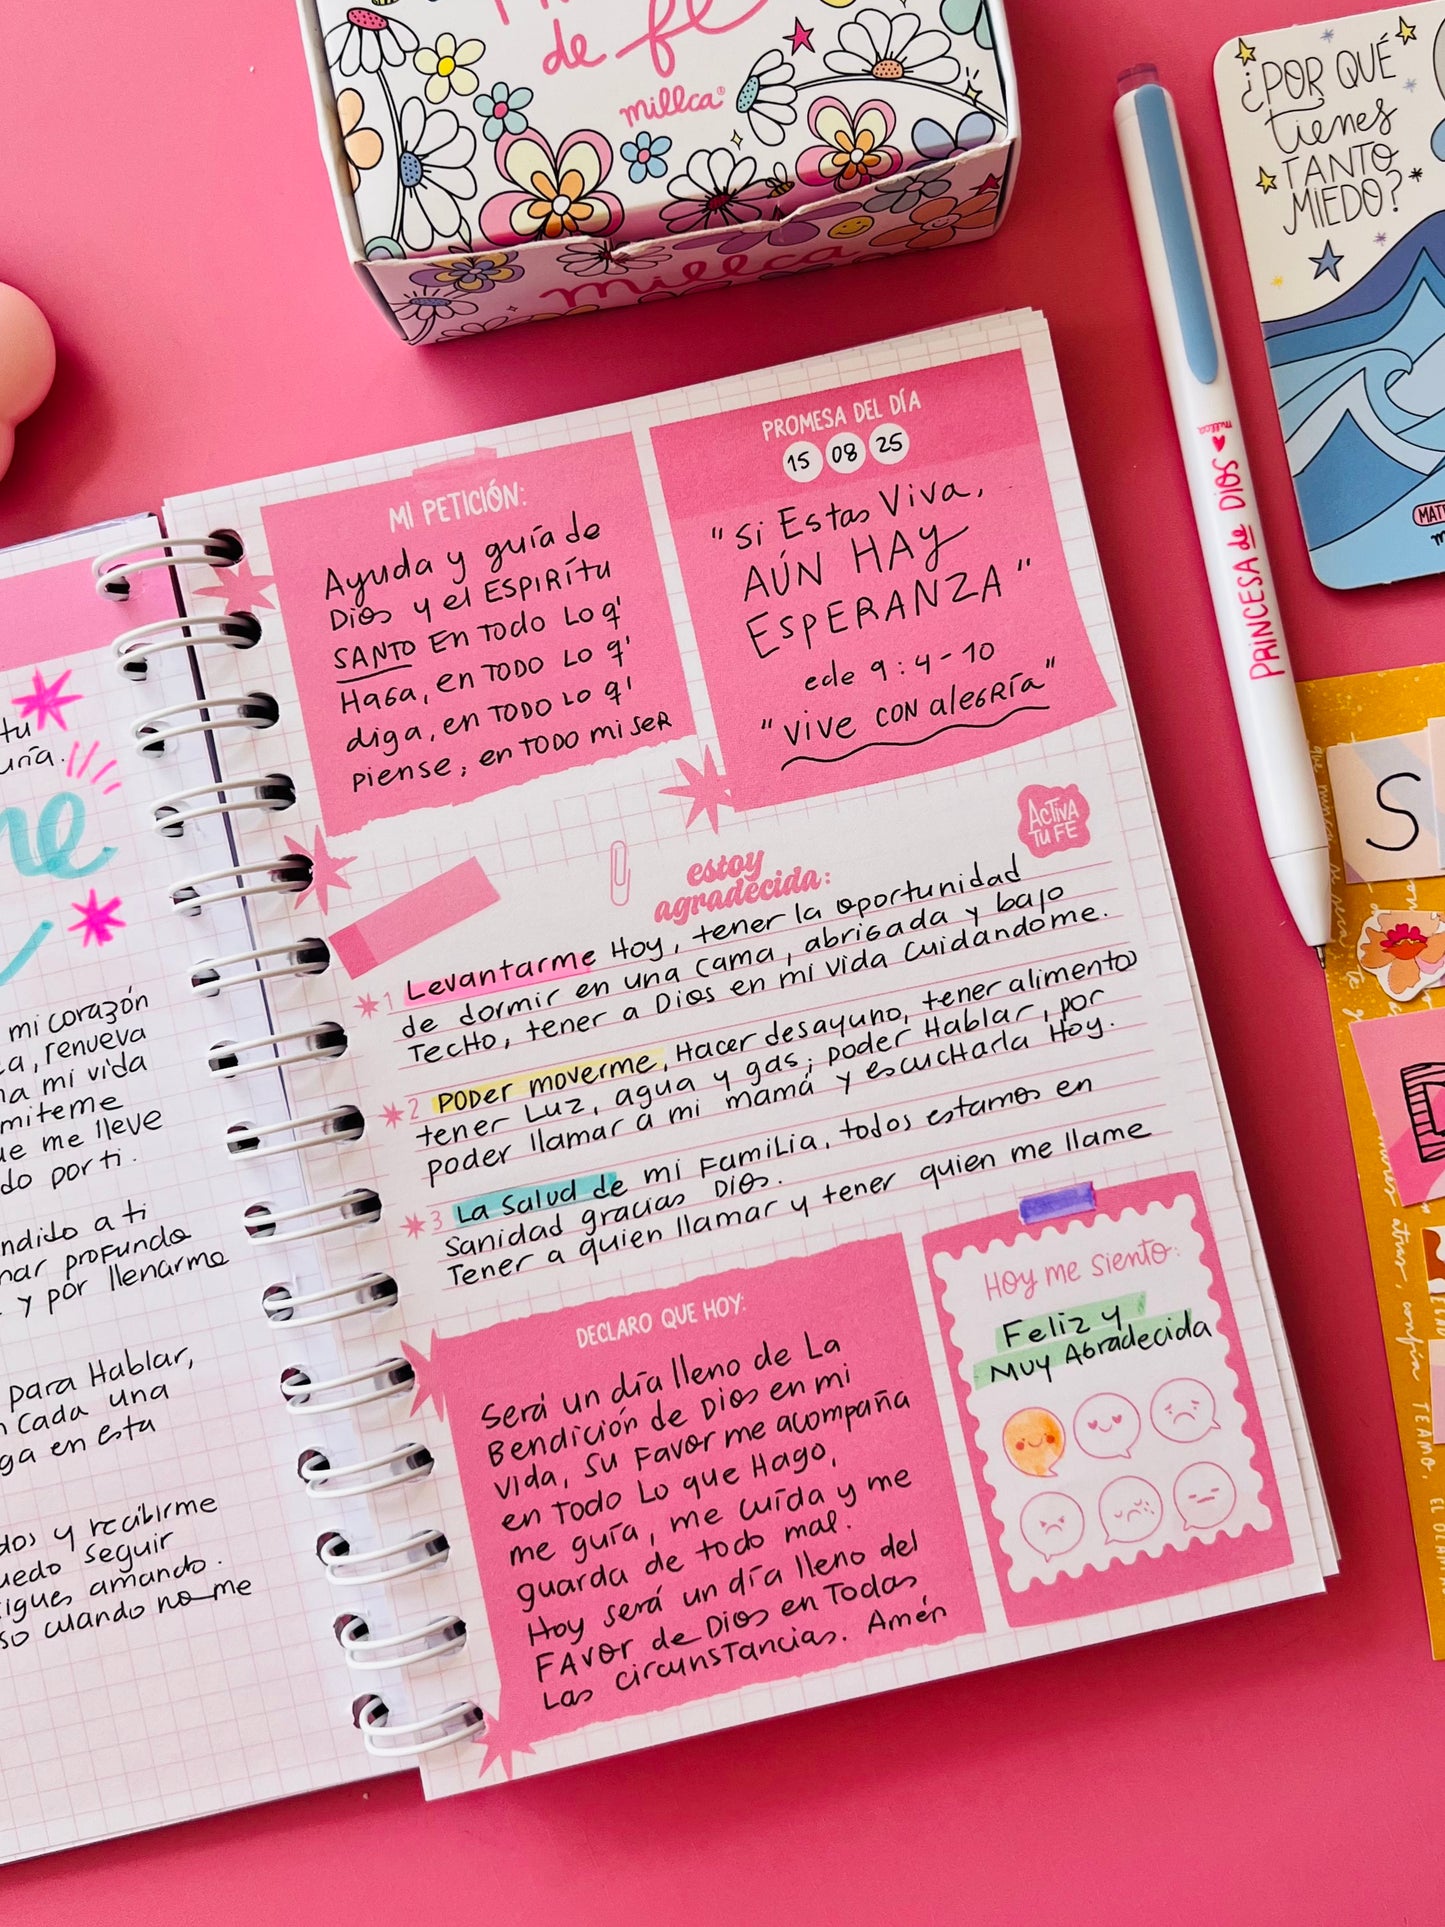 de fe
millca
millca
¿POR QUÉ
tienes
TANTO
MIEDO?
millca
PRINCESA de DIOS
MI PETICIÓN:
Ayuda y guía de
Dios y el ESPIRítu
SANTO En Todo Lo q'
Haga, en TODO Lo q'
diga, en TODO Lo q'
piense, en TODO mi SER
PROMESA DEL DÍA
15 08 25
"Si Estas Viva,
AÚN HAY
ESPERANZA"
ecle 9:4-10
"Vive CON alegRía"
ACTIVA
TU FE
estoy
agradecida:
1 Levantarme Hoy, tener la oportunidad
de dormir en una cama, abrigada y bajo
Techo, tener a Dios en mi vida cuidándome.
2 Poder moverme, Hacer desayuno, tener alimento
tener Luz, agua y gas, poder Hablar, por
poder llamar a mi mamá y escucharla Hoy.
3 La Salud de mi Familia, todos estamos en
Sanidad gracias Dios.
Tener a quien llamar y tener quien me llame
DECLARO QUE HOY:
Será un día lleno de La
Bendición de Dios en mi
vida, su Favor me acompaña
en Todo Lo que Hago,
me guía, me cuída y me
guarda de todo mal.
Hoy será un día lleno del
FAvor de Dios en Todas
Las circunstancias. Amén
Hoy me siento:
Feliz y
Muy Agradecida
tu
uría.
me
mi corazón
a, renueva
na mi vida
miteme
ue me lleve
do por ti.
ndido a ti
nar profundo
y por llenarme
para Hablar,
n cada una
ga en esta
dos y recibirme
uedo seguir
igues amando.
so cuando no me
S
TEAMO,